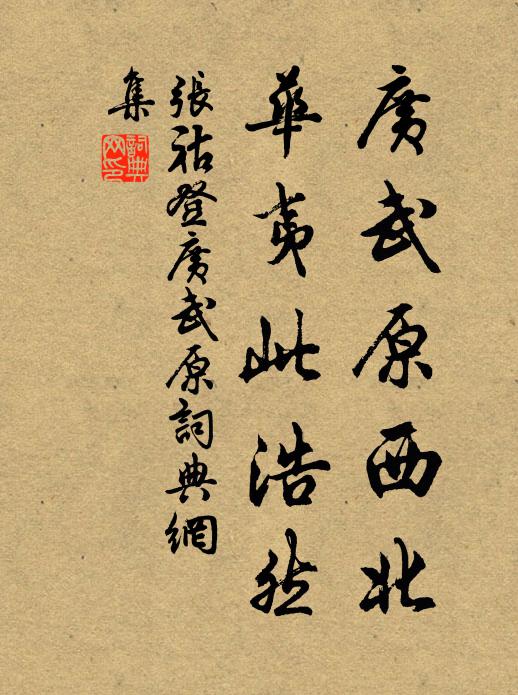 廣武原西北
華夷此浩然
張祜登廣武原詞典網
集
詞典
网印